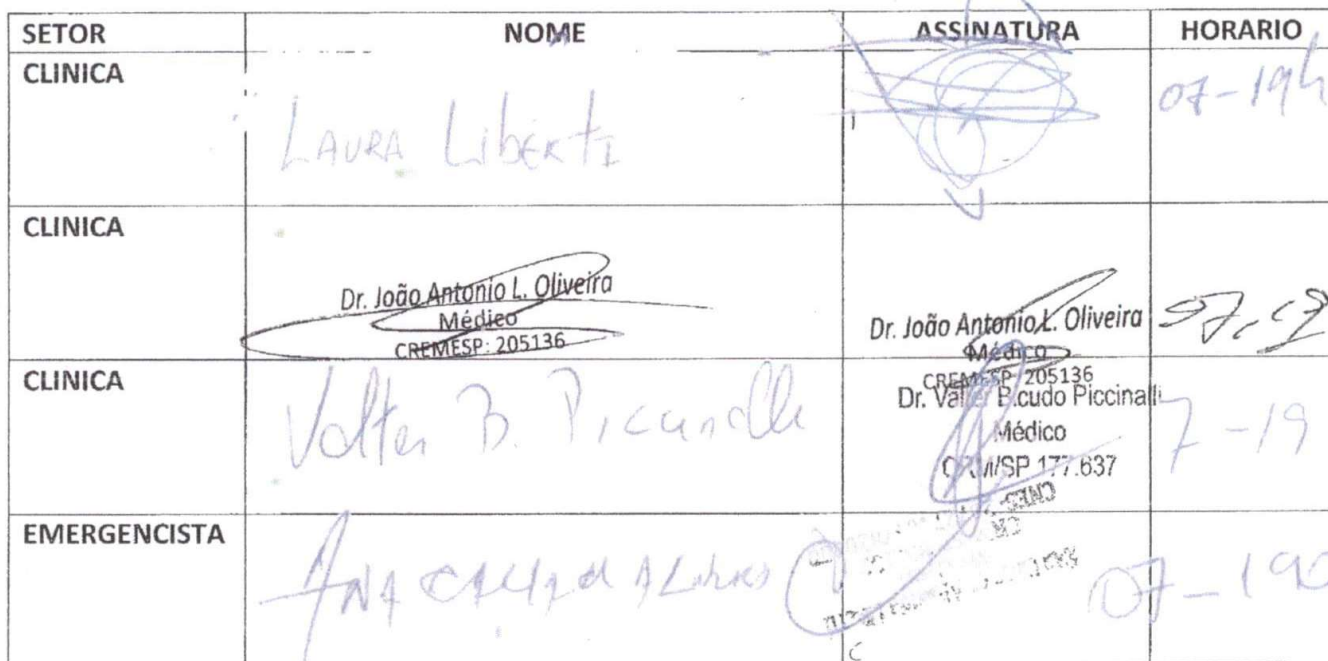 SETOR NOME ASSINATURA HORARIO
CLINICA LAURA Liberti 07-19h
CLINICA
Dr. João Antonio L. Oliveira
Médico
CREMESP: 205136
Dr. João Antonio L. Oliveira
Médico
CREMESP: 205136
CLINICA Valter B. Piccinalli
Dr. Valter Bicudo Piccinalli
Médico
CRM/SP 177.637
7-19
EMERGENCISTA ANA